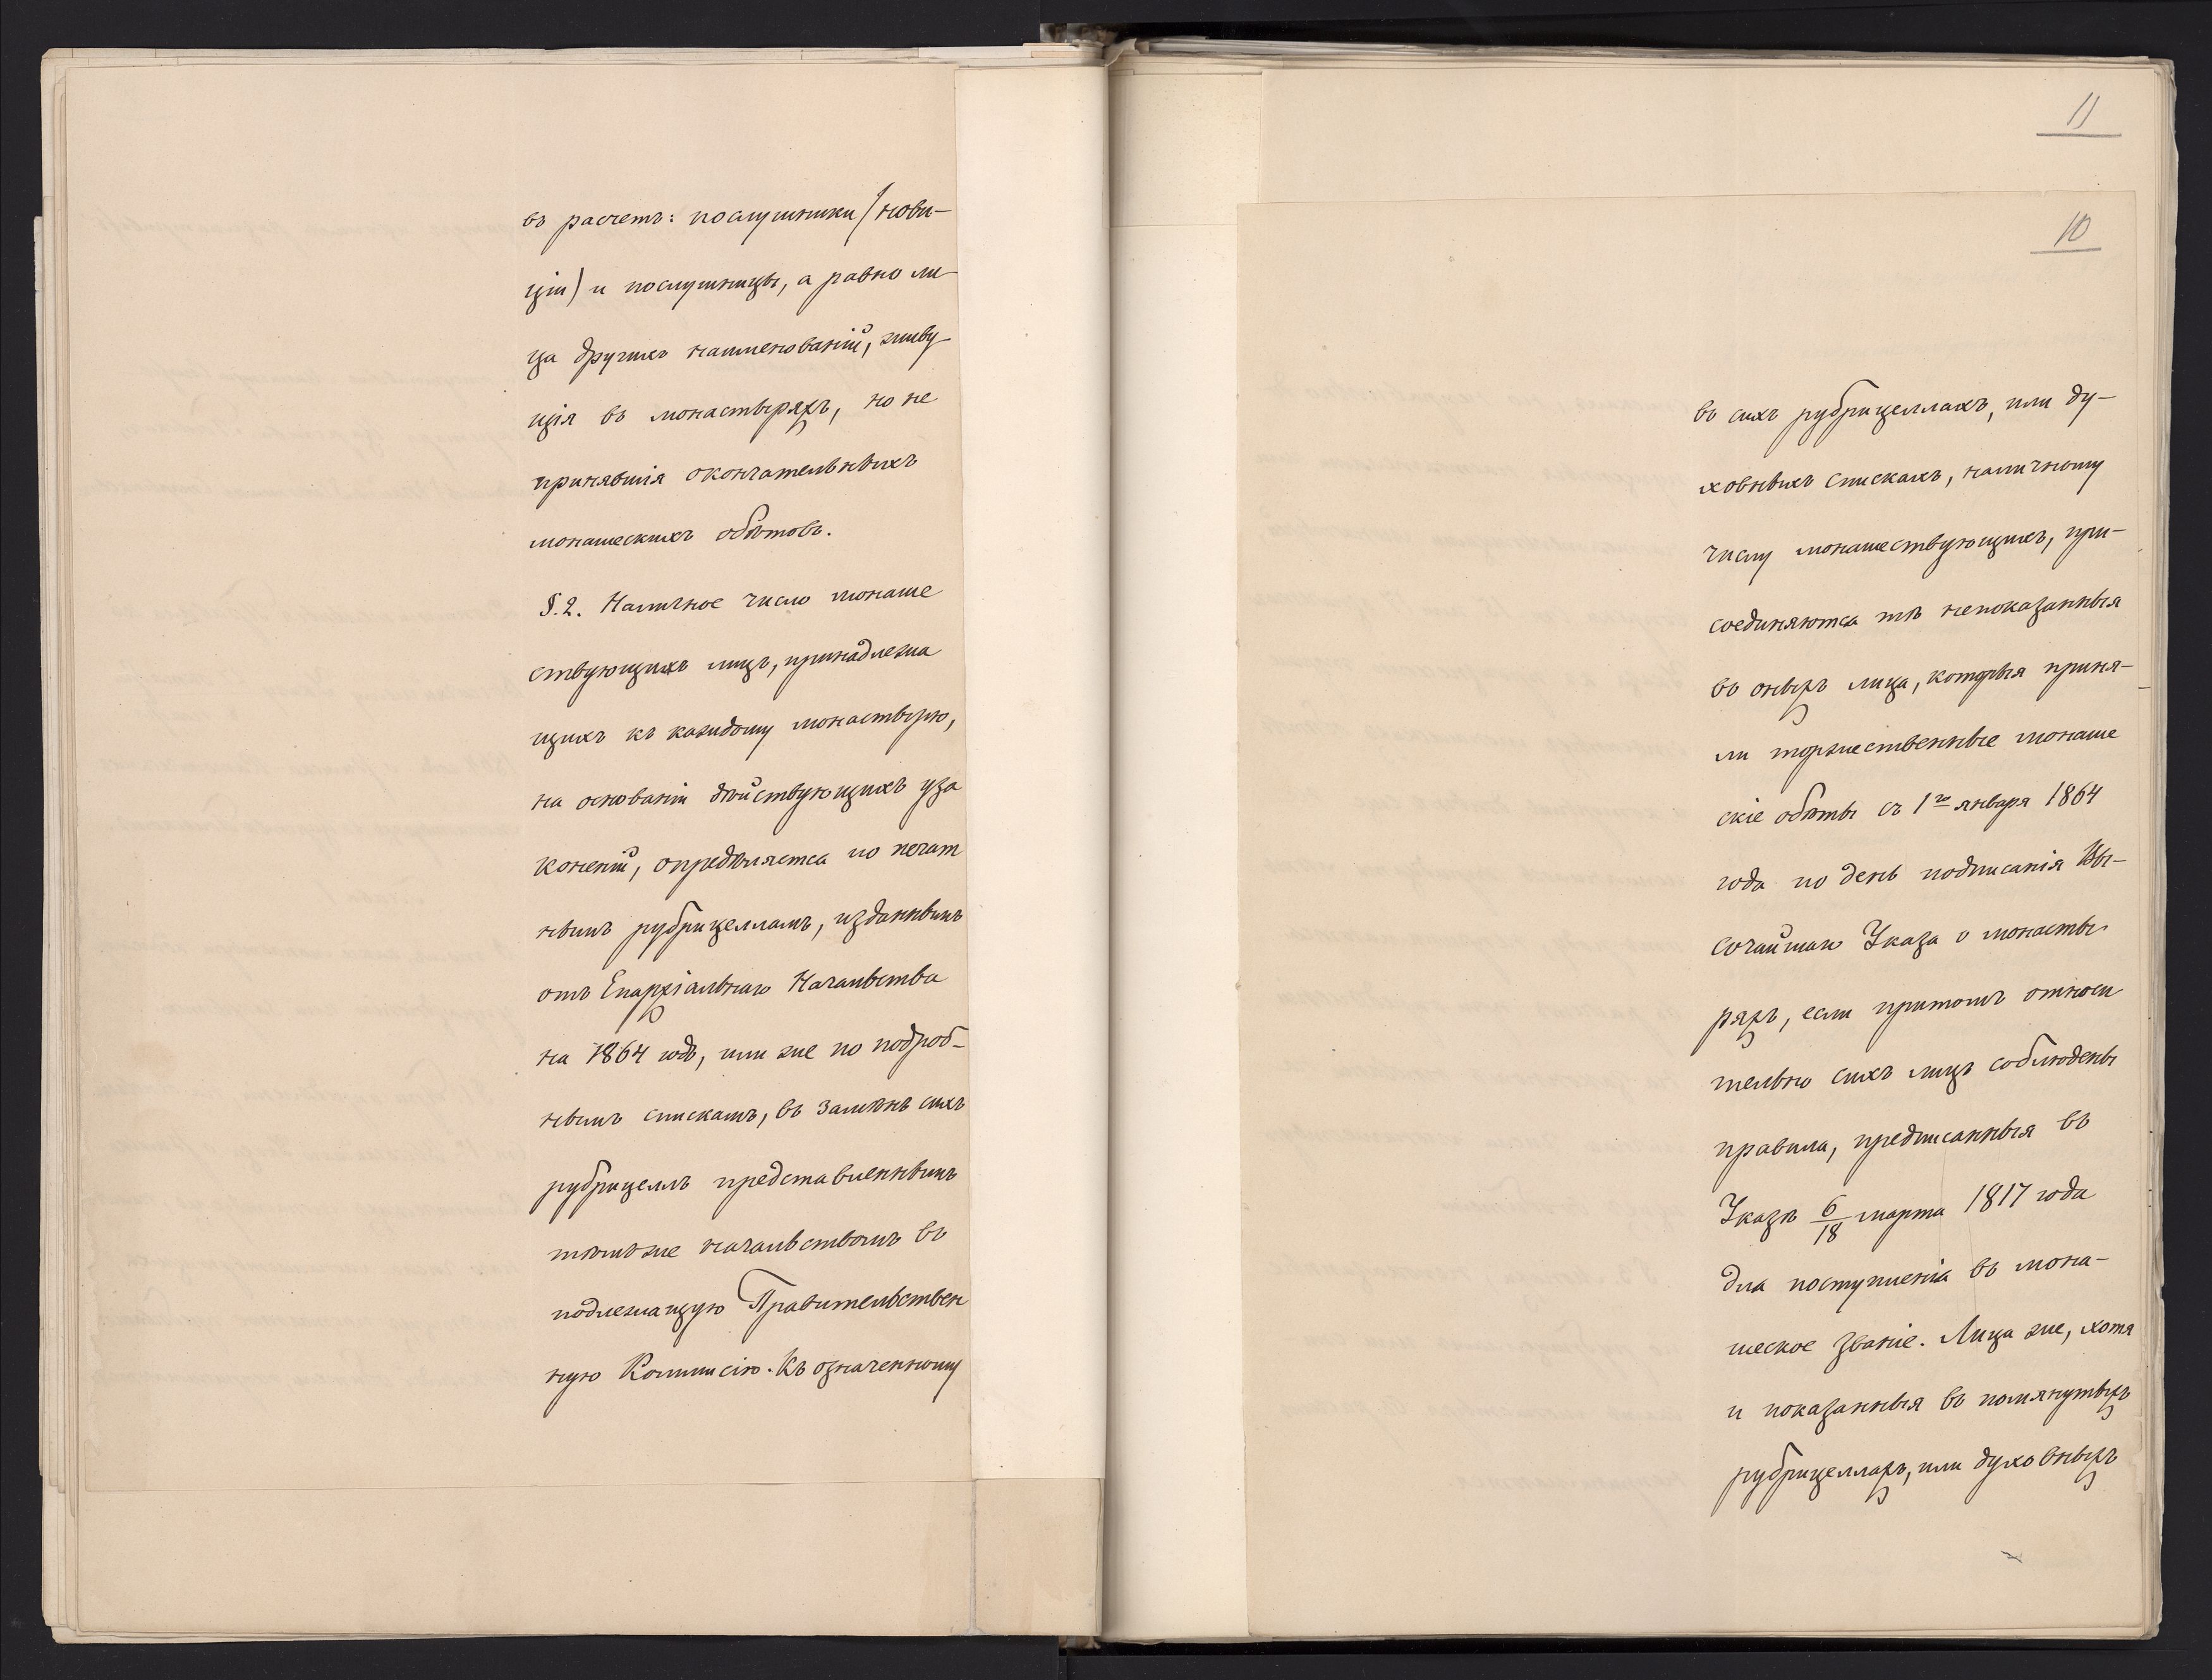 въ расчетъ: послушники (нови-
ціи) и послушницы, а равно ли-
ца другихъ наименованій, живу-
щія въ монастыряхъ, но не
принявшія окончательныхъ
монашескихъ обѣтовъ.
§. 2. Наличное число монаше
ствующихъ лицъ, принадлежа
щихъ къ каждому монастырю,
на основаніи дѣйствующихъ уза
коненій, опредѣляется по печат
нымъ рубрицелламъ, изданнымъ
отъ Епархіальнаго Начальства
на 1864 годъ, или же по подроб-
нымъ спискамъ, въ замѣнъ сихъ
рубрицеллъ представленнымъ
тѣмъ же начальствомъ въ
подлежащую Правительствен
ную Коммисію. Къ означенному
11
10
въ сихъ рубрицеллахъ, или ду-
ховныхъ спискахъ, наличному
числу монашествующихъ, при-
соединяются тѣ непоказанныя
въ оныхъ лица, которыя приня-
ли торжественные монаше
скіе обѣты съ 1го января 1864
года по день подписанія Вы-
сочайшаго Указа о монасты-
ряхъ, если притомъ относи
тельно сихъ лицъ соблюдены
правила, предписанныя въ
Указѣ 6/18 марта 1817 года
для поступленія въ мона-
шеское званіе. Лица же, хотя
и показанныя въ помянутыхъ
рубрицеллахъ, или духовныхъ